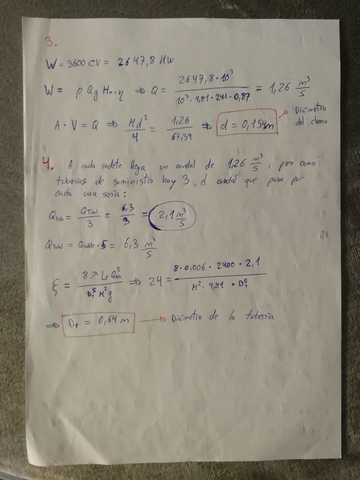 3.
W = 3600 CV = 2647,8 KW
W = ρ Q g Hn · η ⇒ Q = 2647,8 · 10³ / 10³ · 9,81 · 246 · 0,87 = 1,26 m³/s
A · V = Q ⇒ π d²/4 = 1,26 / 67,39 ⇒ d = 0,154m → Diámetro del chorro
4. A cada rodete llega un caudal de 1,26 m³/s, pero como
tuberías de suministro hay 3, el caudal que pasa por
cada una sería:
Qtub = Qtotal / 3 = 6,3 / 3 = 2,1 m³/s
Qtotal = · 5 = 6,3 m³/s
ξ = 8 λ Lt Q² / Dt⁵ π² g ⇒ 24 = 8 · 0,006 · 2400 · 2,1 / π² · 9,81 · Dt⁵
⇒ Dt = 0,64 m → Diámetro de la tubería